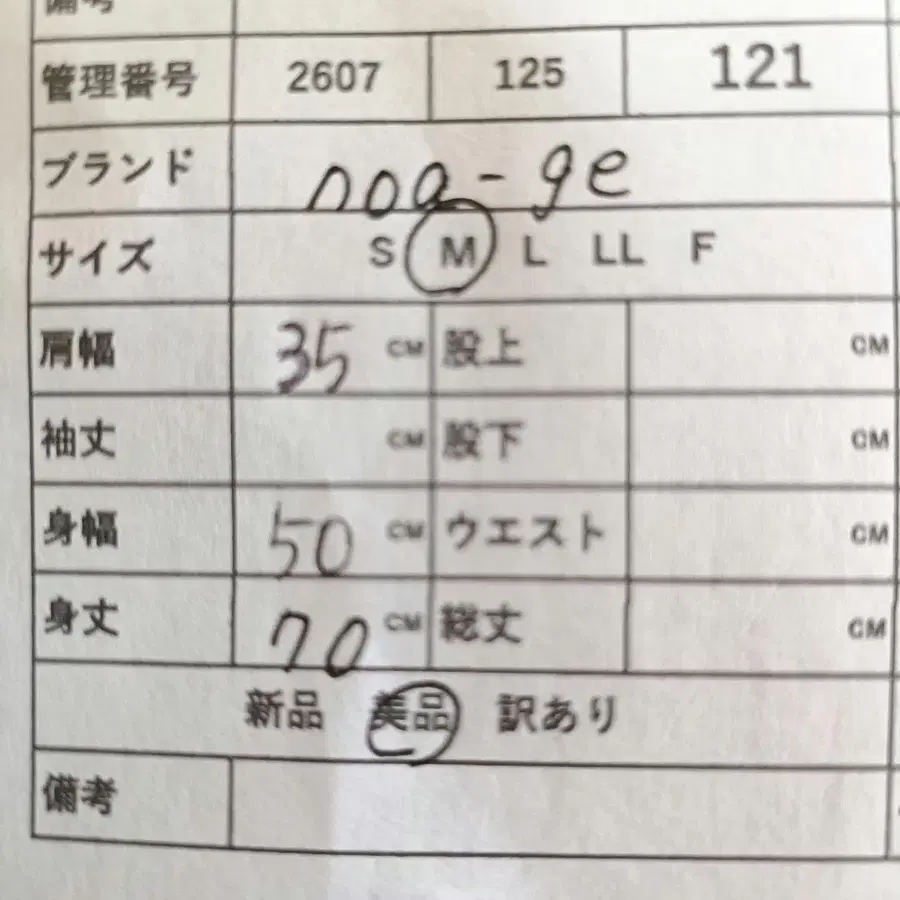 備考
管理番号 2607 125 121
ブランド noa-ge
サイズ S M L LL F
肩幅 35 CM 股上 CM
袖丈 CM 股下 CM
身幅 50 CM ウエスト CM
身丈 70 CM 総丈 CM
新品 美品 訳あり
備考